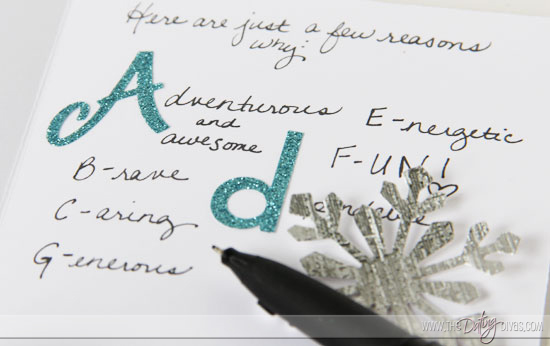 Here are just a few reasons
why:
Adventurous
and
awesome
B-rave
C-aring
d
E-nergetic
F-UN!
G-enerous
WWW.THEDatingDIVAS.COM